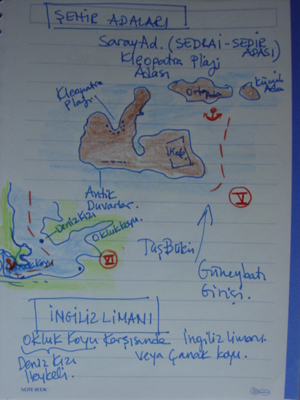 ŞEHİR ADALARI
Saray Ad. (SEDRAİ-SEDİR
ADASI)
Kleopatra Plajı
Adası
Kleopatra
Plajı.
Ortaada
Küçük
Ada
Antik
Duvarlar.
V
Deniz Kızı
Okluk Koyu.
VI
Taş Bükü
Güneybatı
Girişi.
İNGİLİZ LİMANI
Okluk Koyu Karşısında İngiliz Limanı
Deniz Kızı veya Çanak Koyu.
Heykeli.